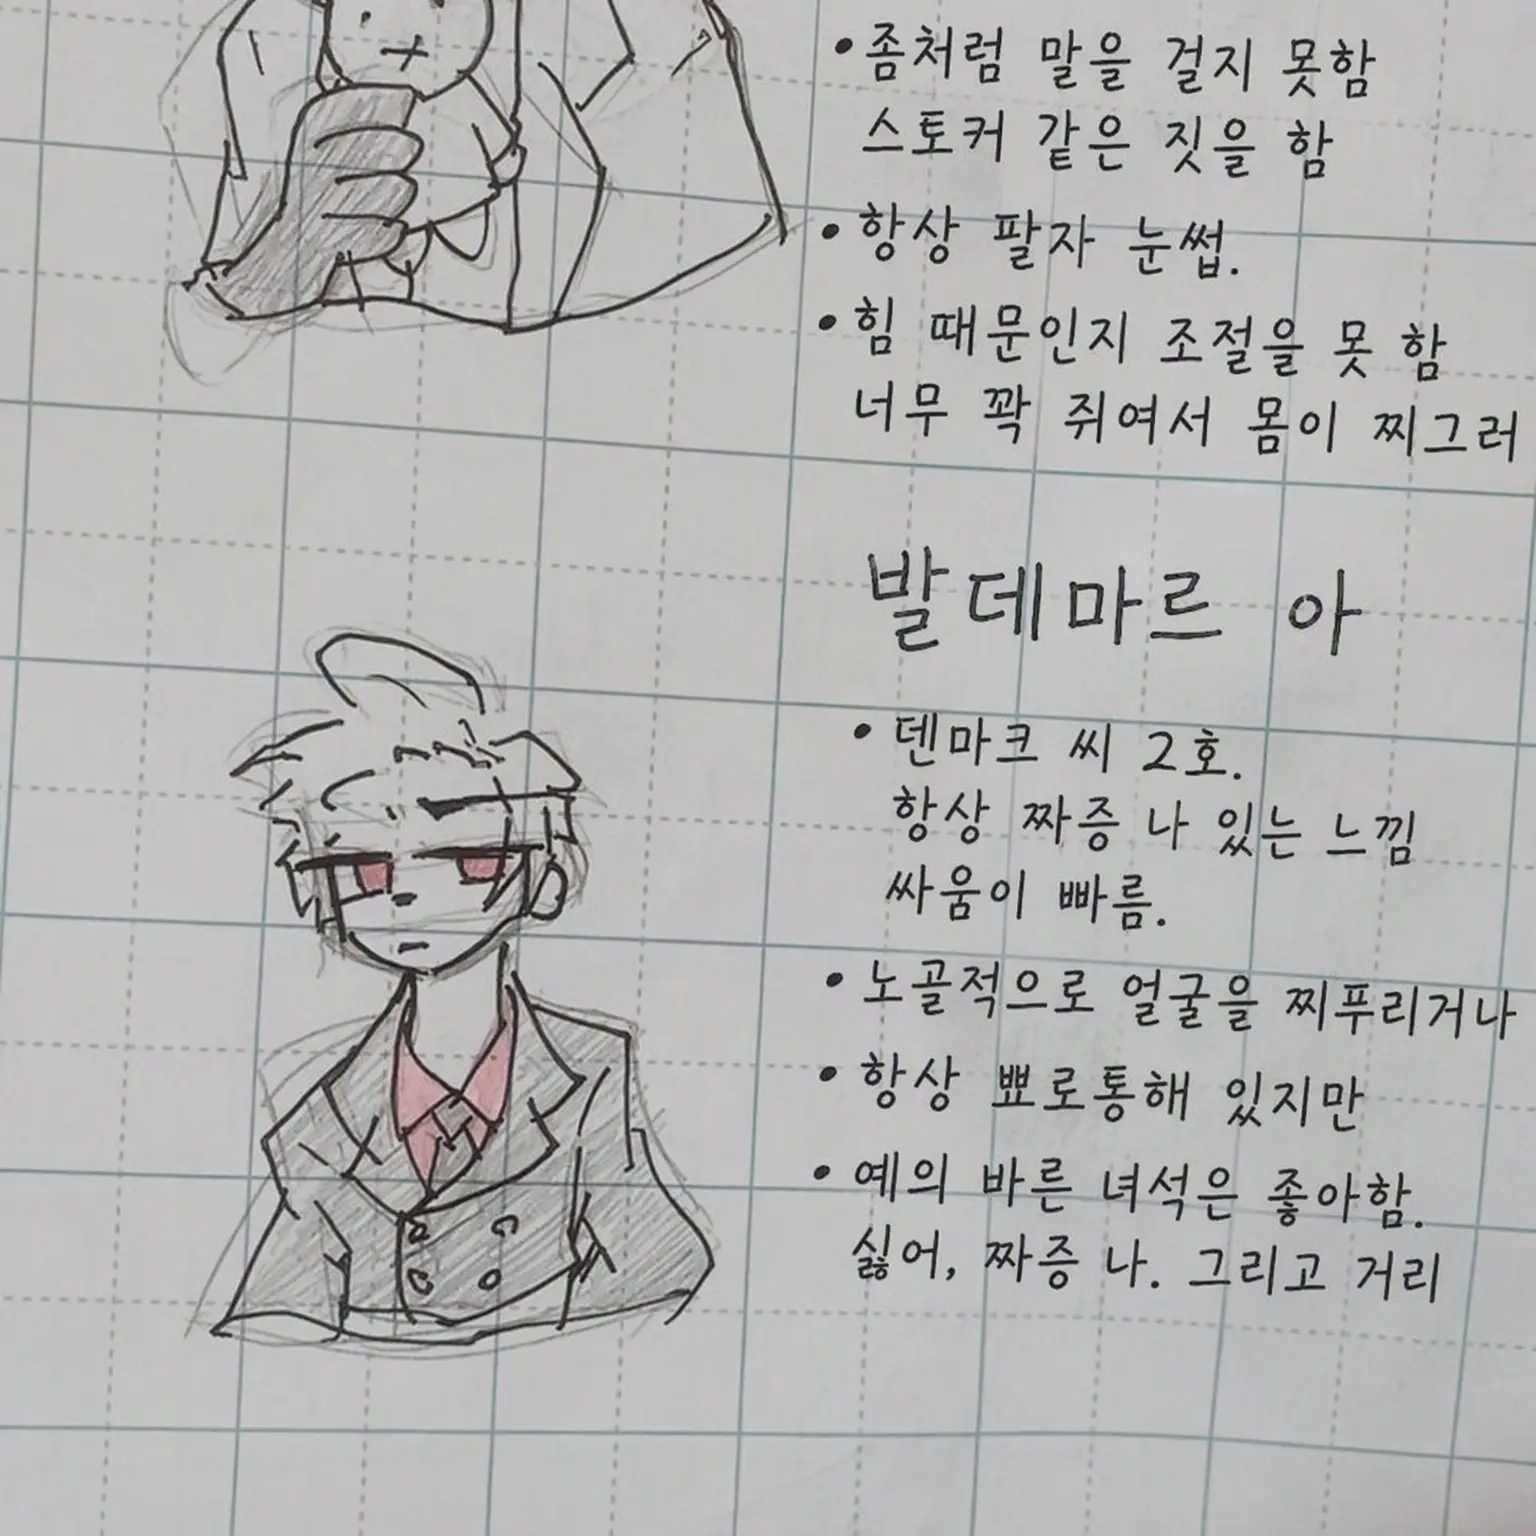 • 좀처럼 말을 걸지 못함
스토커 같은 짓을 함
• 항상 팔자 눈썹.
• 힘 때문인지 조절을 못 함
너무 꽉 쥐여서 몸이 찌그러
발데마르 아
• 덴마크 씨 2호.
항상 짜증 나 있는 느낌
싸움이 빠름.
• 노골적으로 얼굴을 찌푸리거나
• 항상 뾰로통해 있지만
• 예의 바른 녀석은 좋아함.
싫어, 짜증 나. 그리고 거리